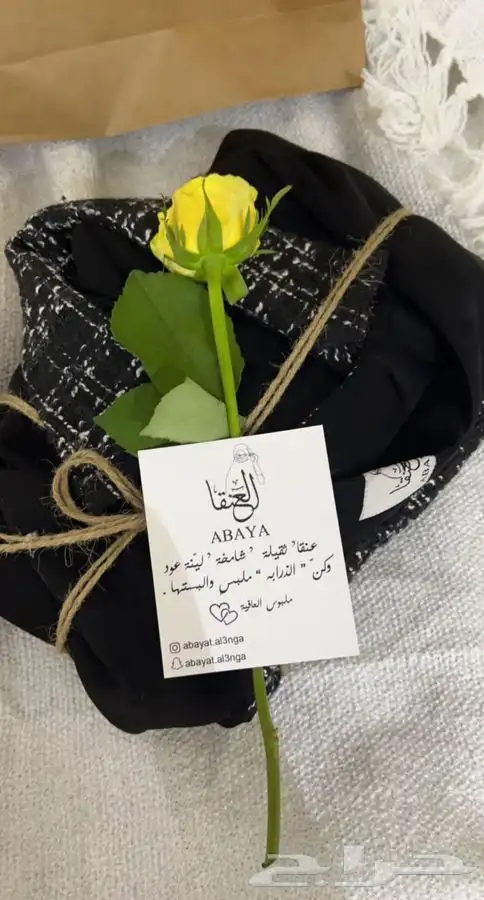 العنقا
ABAYA
عنقا ثقيلة ’ شامخة ’ ليّنة عود
وكنّ " الذرابه " ملبس والبستها .
ملبوس العافية
abayat.al3nga
abayat.al3nga
ABA
حراج